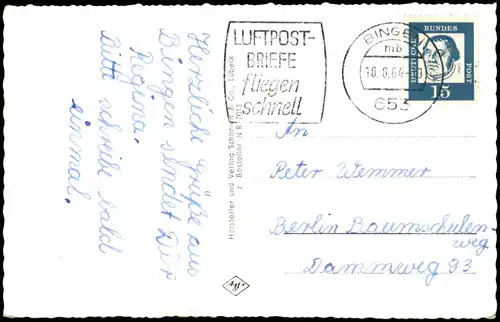 Herzliche Grüße aus
Bingen sendet Dir
Regina.
Bitte schreibe bald
einmal.
Hersteller und Verlag Schöning & Co., Lübeck
z. Bestellnr. NR
LUFTPOST-
BRIEFE
fliegen
schnell
BINGEN
mb
10.8.64
653
DEUTSCHE
BUNDES
POST
15
An
Peter Wemmer
Berlin Baumschulen-
weg
Dammweg 93